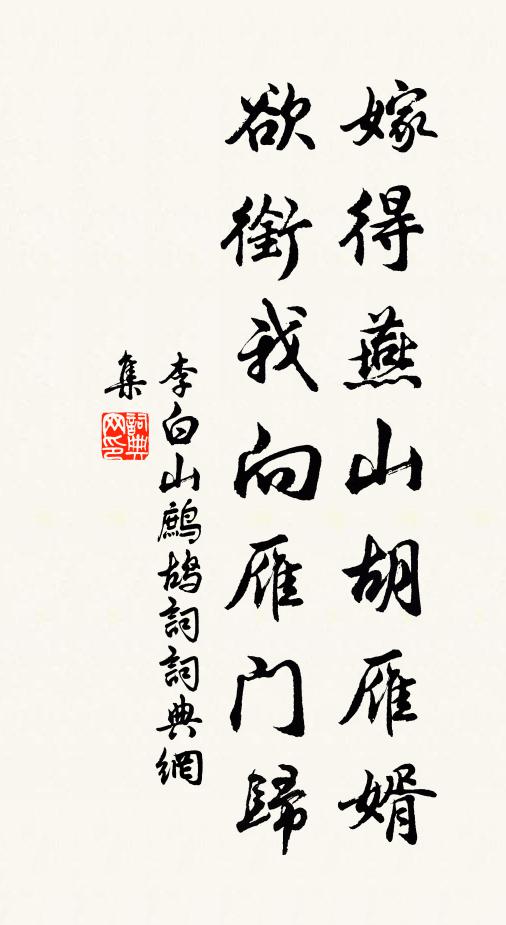 嫁得燕山胡雁婿
欲銜我向雁门歸
李白山鷓鴣詞詞典網
集
詞典网印